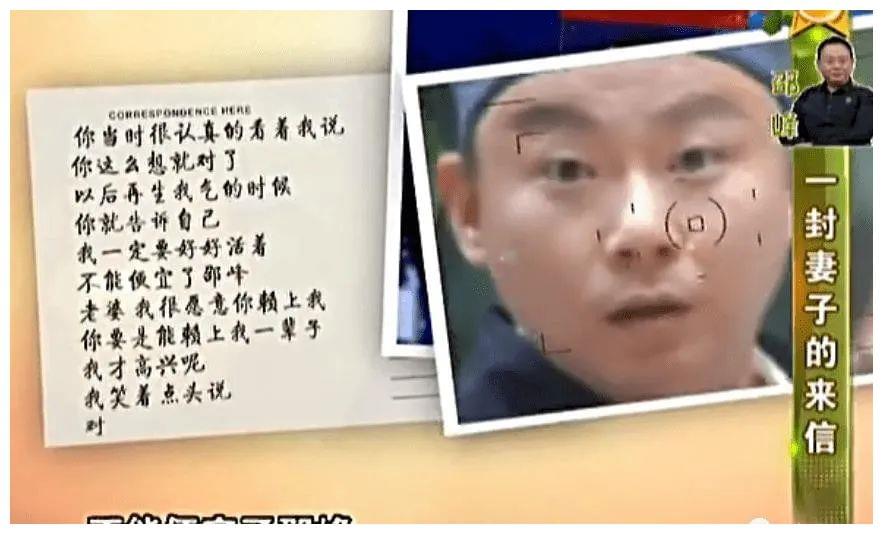 CORRESPONDENCE HERE
你当时很认真的看着我说
你这么想就对了
以后再生我气的时候
你就告诉自己
我一定要好好活着
不能便宜了邵峰
老婆 我很愿意你赖上我
你要是能赖上我一辈子
我才高兴呢
我笑着点头说
对
邵峰
一封妻子的来信
不能便宜了邵峰